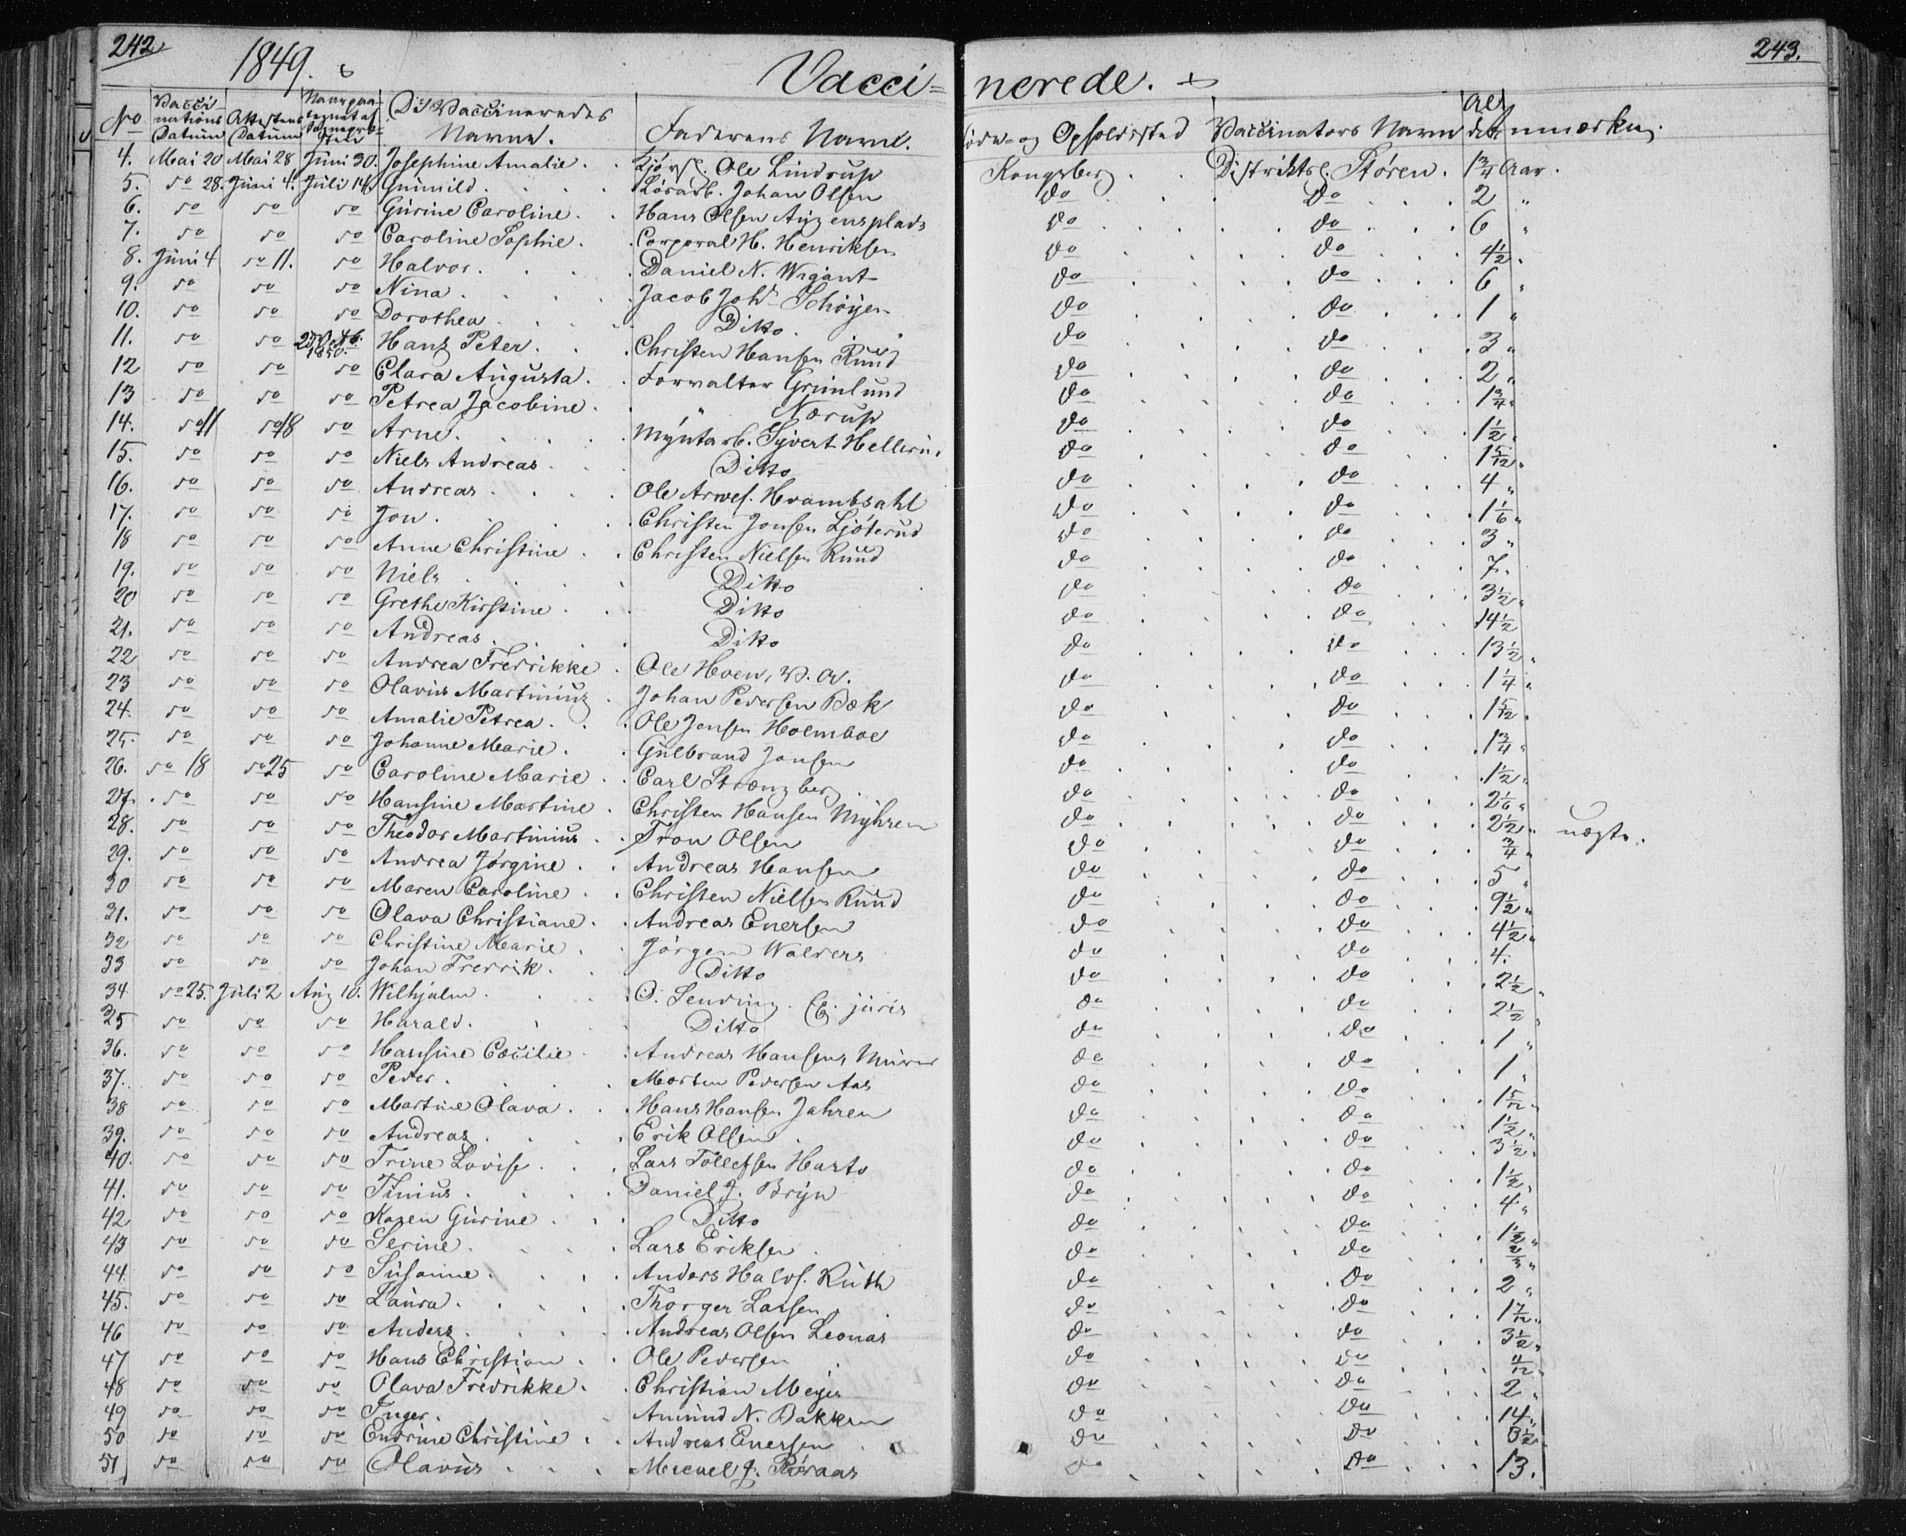 242 1849. Vacci= nerede. 243.
No Vacci- nations Datum Attestens Datum De Vaccineredes Navne. Faderens Navne. og Opholdssted Vaccinators Navn Al- der
4. Mai 20 Mai 28 Juni 30. Josephine Amalie. Ole Lindrup Kongsberg Distriktsl. Støren. 1 3/4 Aar.
5. do 28. Juni 4. Juli 14. Gunnild. Johan Olsen do do 2 "
6. do do do Gurine Caroline. Hans Olsen do do 6 "
7. do do do Caroline Sophie. Corporal H. Henriksen do do 4 1/2 "
8. Juni 4 do 11. do Halvor. Daniel N. Wigant do do 6 "
9. do do do Nina. Jacob Joh. Schøyen do do 1 "
10. do do do Dorothea Ditto. do do 3 "
11. do do 1850. Hans Peter. Christen Hansen Ruud do do 2 "
12 do do do Clara Augusta. Forvalter Grimlund do do 1 3/4 "
13 do do do Petrea Jacobine. " Nærup do do 1 1/2 "
14. do 11 do 18 do Arne. Myntarb. Syvert do do 1 5/12 "
15. do do do Niels Andreas. Ditto do do 4 "
16. do do do Andreas. Ole do do 1 1/6 "
17. do do do Jon. Christen Jonsen do do 3 "
18 do do do Anne Christine. Christen Nielsen Ruud do do 7 "
19. do do do Niels Ditto do do 3 1/2 "
20 do do do Grethe Kirstine. Ditto do do 14 1/2
21. do do do Andreas. Ditto do do 13 1/2 "
22 do do do Andrea Fredrikke. Ole Hoen, do do 1 1/4 "
23 do do do Olavus Martinius. Johan Pedersen Bæk do do 1 5/12 "
24. do do do Amalie Petrea. Ole Jensen Holmboe do do 1 3/4 "
25. do do do Johanne Marie. Gulbrand Jonsen do do 1 1/2 "
26. do 18 do 25 do Caroline Marie. Carl do do 2 1/6 "
27. do do do Hansine Martine. Christen Hansen Myhren do do 2 1/2 "
28. do do do Theodor Martinius. Tron Olsen do do 3/4 " uægte.
29. do do do Andrea Jørgine. Andreas Hansen do do 5 "
30 do do do Maren Caroline. Christen Nielsen Ruud do do 9 1/2 "
31. do do do Olava Christiane. Andreas Enersen do do 4 1/2 "
32 do do do Christine Marie. Jørgen do do 4.
33 do do do Johan Fredrik. Ditto do do 2 1/2 "
34 do 25. Juli 2 Aug 10. Wilhjalm. juris do do 2 1/2 "
35 do do do Harald. Ditto do do 1 "
36. do do do Hansine Cæcilie. Andreas Hansen, Murer do do 1 "
37. do do do Peder. Morten Pedersen Aas do do 1 5/12 "
38 do do do Martine Olava. Hans Hansen Jahren do do 1 1/2 "
39. do do do Andreas. Erik Olsen do do 3 1/2 "
40. do do do Trine Lovise. Lars Tollefsen do do 1 1/2 "
41. do do do Tinius. Daniel J. Bryn do do 4 "
42 do do do Karen Gurine. Ditto do do 1 1/2 "
43 do do do Serine. Lars Eriksen do do 2/3 "
44. do do do Susanne. Anders Halvs. Ruth do do 2 "
45. do do do Laura. Thorger Larsen do do 1 7/12 "
46 do do do Anders. Andreas Olsen Leonas do do 3 1/2 "
47 do do do Hans Christian. Ole Pedersen do do
48 do do do Olava Fredrikke. Christian Meyer do do 2 "
49 do do do Inger. Amund N. Bakken do do 14 "
50 do do do Endrine Christine. Andreas Enersen do do
51 do do do Olavus do do 13.